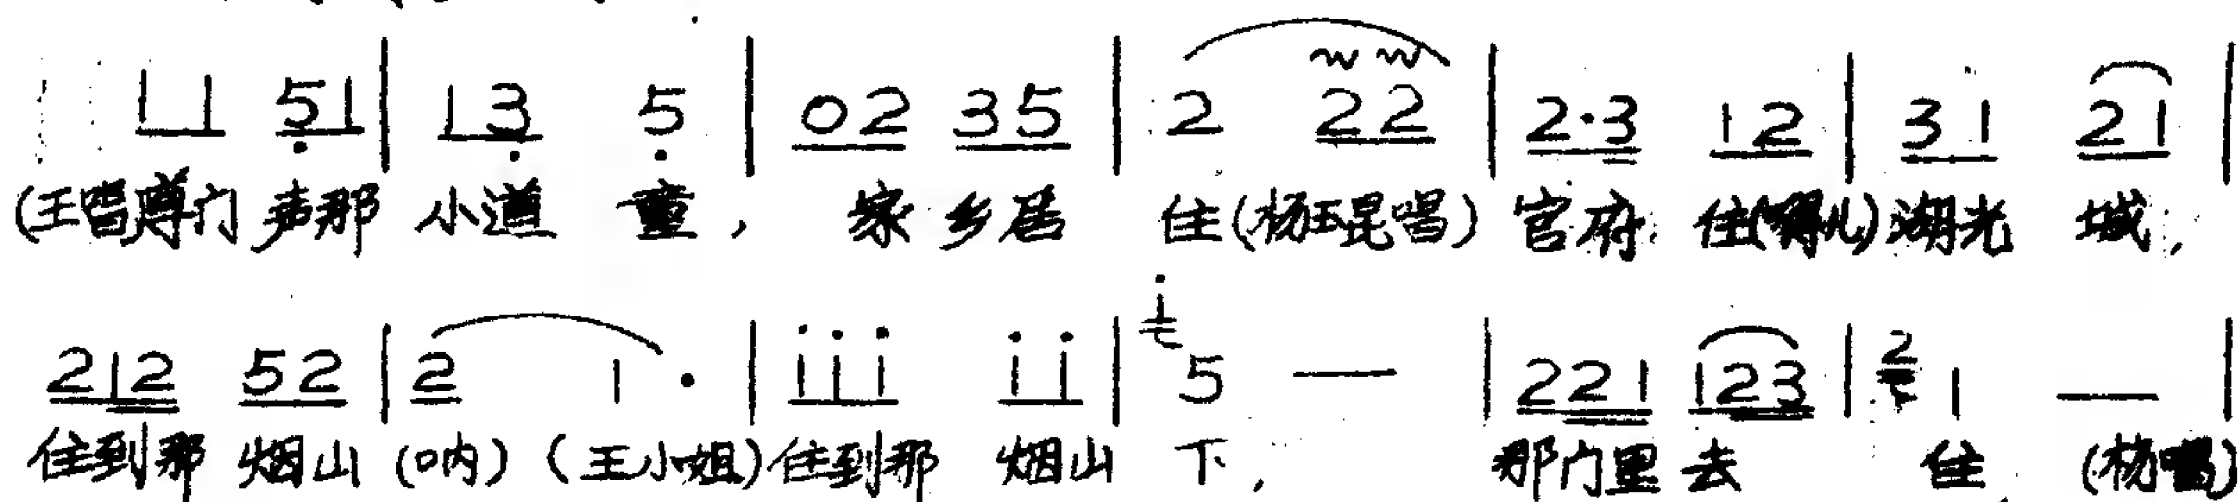 11 5̣1 | 13̣ 5̣ | 02 35 | 2 22 | 2·3 12 | 31 21 |
(王唱尊门声那 小道 童, 家乡居 住(杨玉昆唱)官府 住(得儿)湖光 城,
212 52 | 2 1· | i̇i̇i̇ i̇i̇ | i̇ 5 — | 221 123 | 2 1 — |
住到那 烟山(呐)(王小姐)住到那 烟山 下, 那门里去 住 (杨唱)